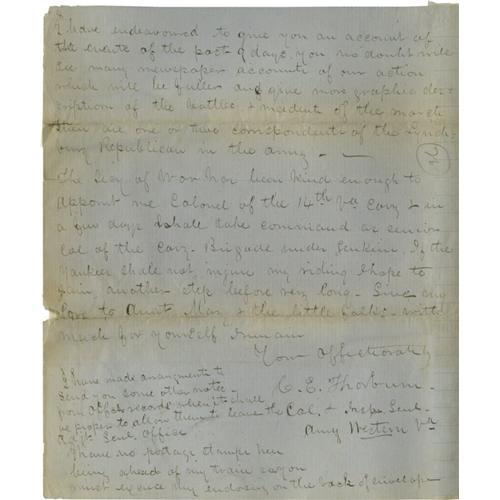 I have endeavoured to give you an account of
the events of the past 9 days. you no doubt will
see many newspaper accounts of our action
which will be fuller and give more graphic des-
cription of the battles, & incident of the march
there are one or two correspondents of the Lynch-
burg Republican in the army — —
The Secy of War has been kind enough to
appoint me Colonel of the 14th Va Cavy & in
a few days I shall take command as senior
Col of the Cavy. Brigade under Jenkins. If the
Yankees shall not injure my riding I hope to
gain another step before very long - Give my
love to Aunt Mary & the little folks - with
much for yourself I am
Your affectionately
C. E. Thorburn.
Col. & Insp. Genl.
Army Western Va
I have made arrangements to
send you some other notes
from offcl records when it shall
be proper to allow them to leave the
Adjt. Genl. Office
I have no postage stamps here
being ahead of my train so you
must excuse my endorsing on the back of envelope